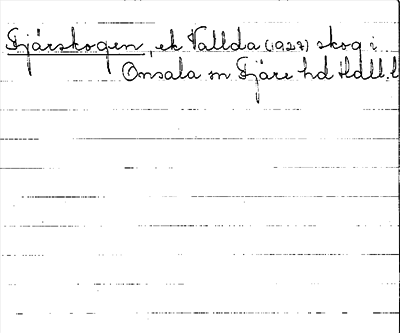 Fjärskogen, ek Vallda (1927) skog i
Onsala sn Fjäre hd Hall. l